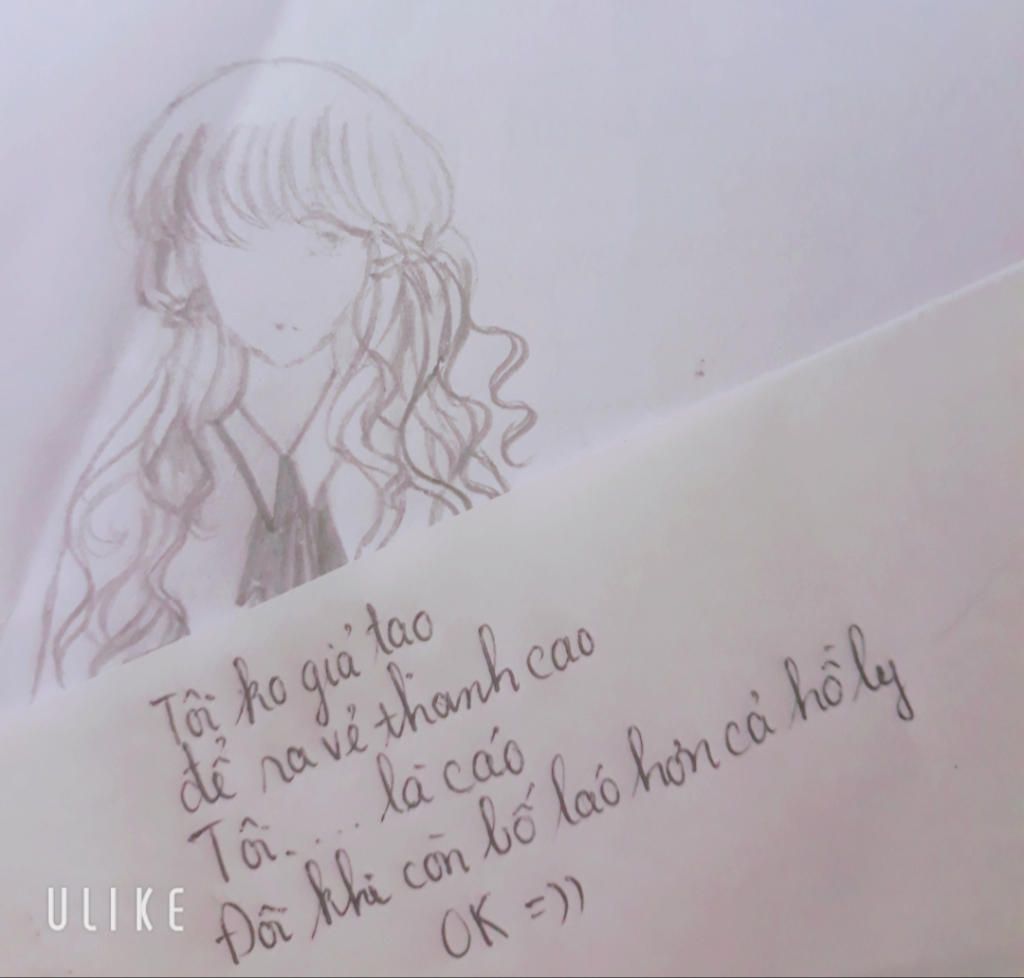 Tôi ko giả tạo
để ra vẻ thanh cao
Tôi..... là cáo
Đôi khi còn bố láo hơn cả hồ ly
OK =))
ULIKE